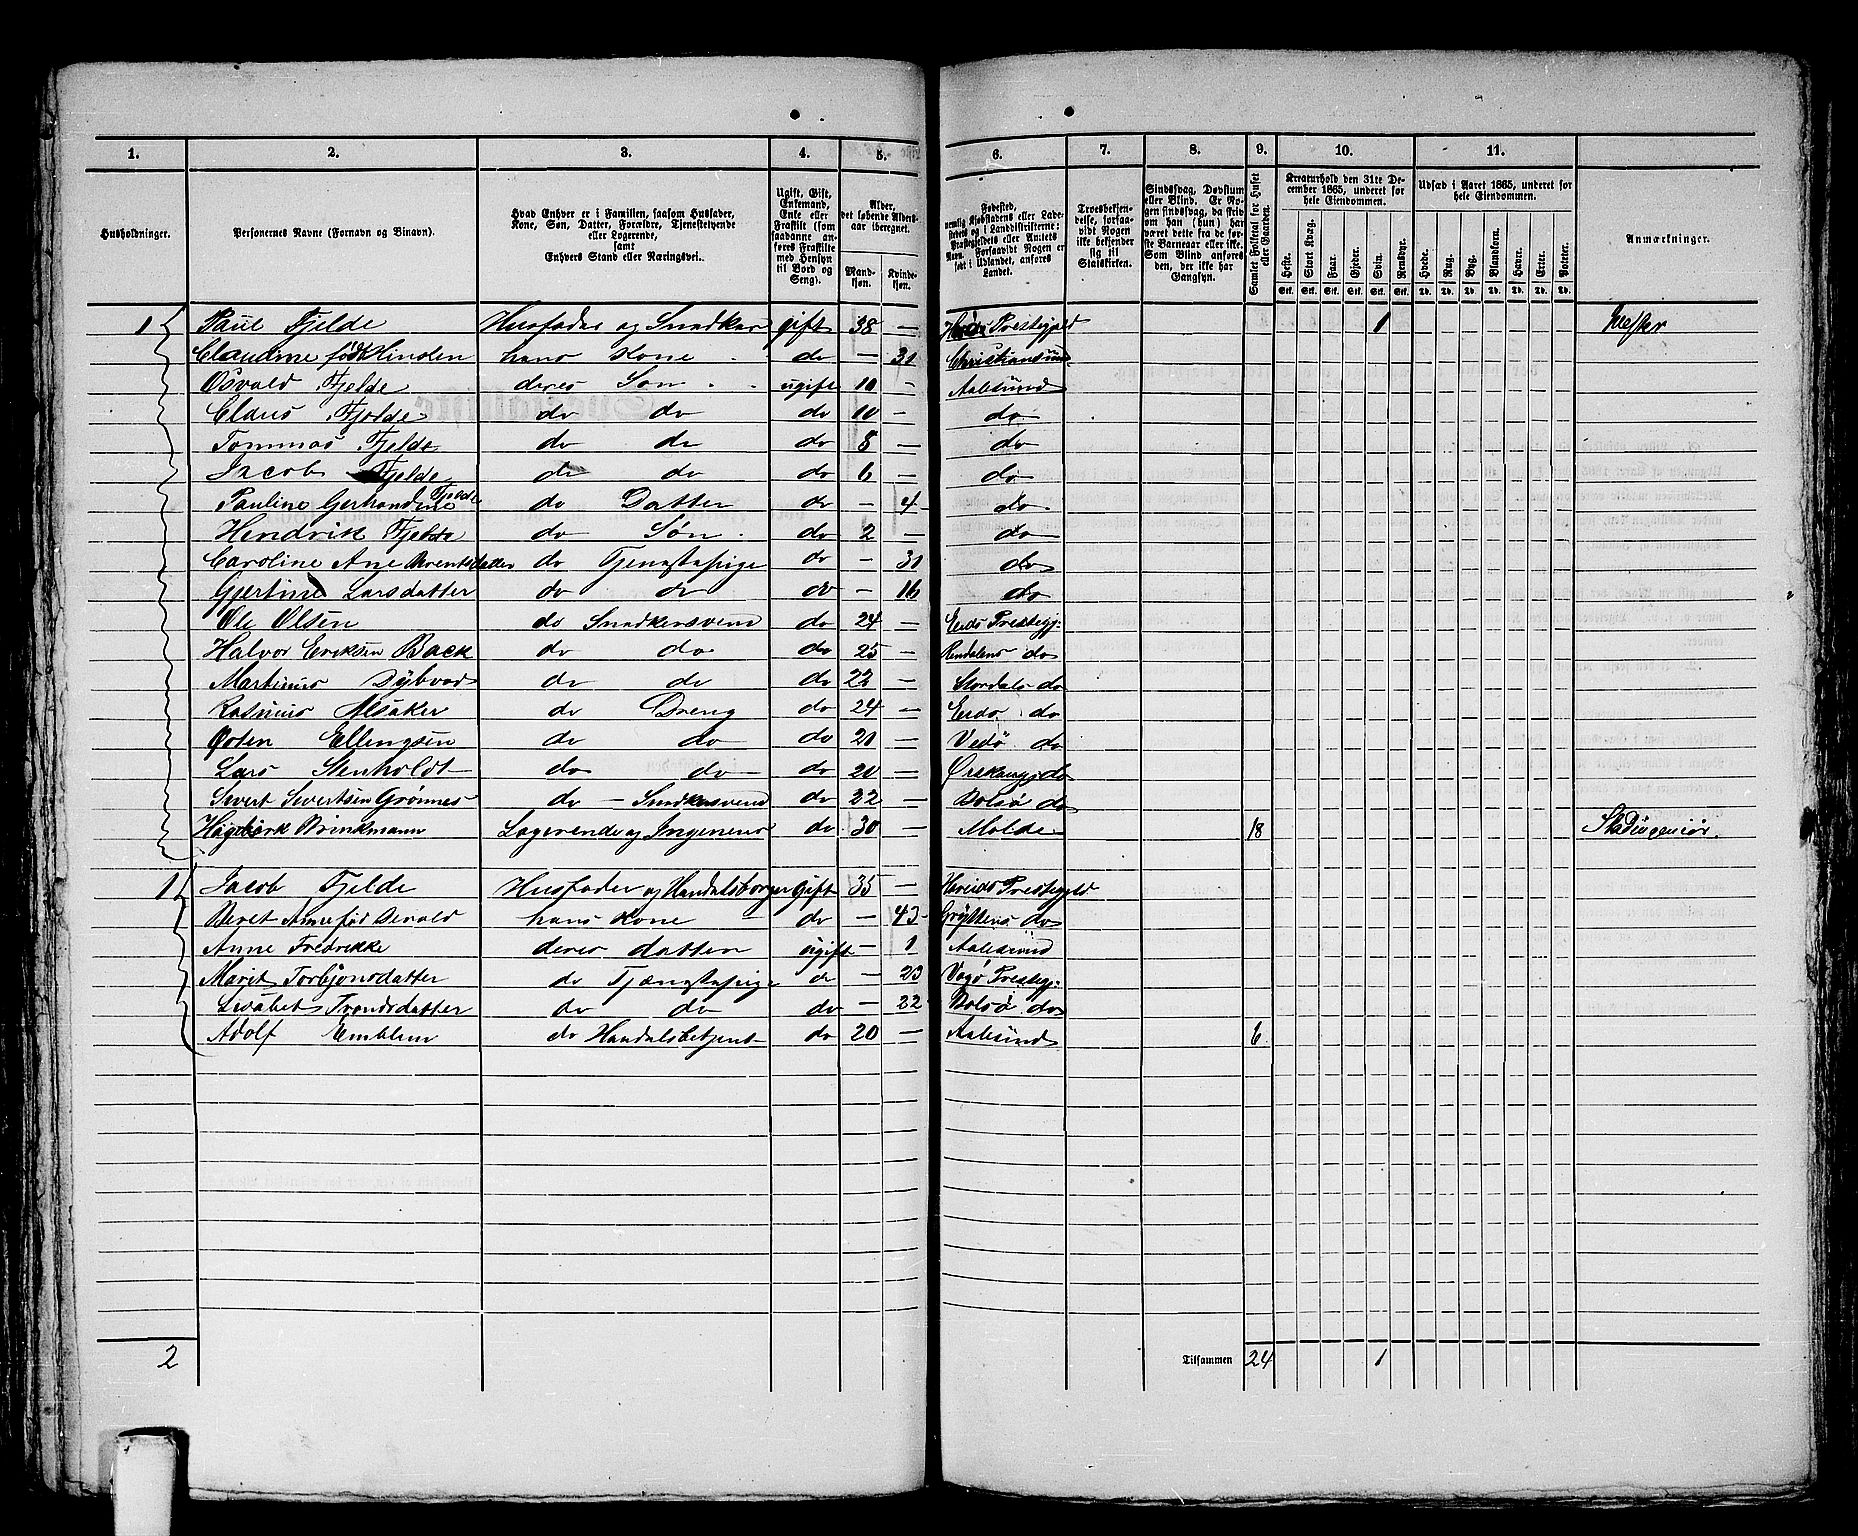 1. 2. 3. 4. 5. 6. 7. 8. 9. 10. 11.
Husholdninger.
Personernes Navne (Fornavn og Binavn).
Hvad Enhver er i Familien, saasom Husfader, Kone, Søn, Datter, Forældre, Tjenestetyende eller Logerende, samt Enhvers Stand eller Næringsvei.
Ugift, Gift, Enkemand, Enke eller Fraskilt (som saadanne anføres Fraskilte med Hensyn til Bord og Seng).
Alder, det løbende Aldersaar iberegnet.
Mandkjøn. Kvindekjøn.
Fødested, nemlig Kjøbstadens eller Ladestedets og i Landdistrikterne: Præstegjeldets eller Amtets Navn. Forsaavidt Nogen er født i Udlandet, anføres Landet.
Troesbekjendelse, forsaavidt Nogen ikke bekjender sig til Statskirken.
Sindssvag, Døvstum eller Blind. Er Nogen sindssvag, da skriv om han (hun) har været dette fra de første Barneaar eller ikke. Som Blind anføres den, der ikke har Gangsyn.
Samlet Folketal for Huset eller Gaarden.
Kreaturhold den 31te December 1865, underet for hele Eiendommen.
Heste. Stort Kvæg. Faar. Gjeder. Svin. Rensdyr.
Stk. Stk. Stk. Stk. Stk. Stk.
Udsæd i Aaret 1865, underet for hele Eiendommen.
Hvede. Rug. Byg. Blandkorn. Havre. Erter. Poteter.
Td. Td. Td. Td. Td. Td. Td.
Anmærkninger.
1 Paul Fjelde Husfader og Snedker gift 38 — Prestegjeld 1 Mester
Claudine født Hinden hans Kone do — 31 Christiansund
Osvald Fjelde deres Søn ugift 10 — Aalesund
Claus Fjelde do do do 10 — do
Tommas Fjelde do do do 8 — do
Jacob Fjelde do do do 6 — do
Pauline Gerhardine Fjelde do Datter do — 4 do
Hendrik Fjelde do Søn do 2 — do
Caroline Ane Berntsdatter do Tjenestepige do — 31 do
Gjertine Larsdatter do do do — 16 do
Ole Olsen do Snedkersvend do 24 — Eids Prestegj.
Halvor Eriksen Back do do do 25 — Rendalens do
Martinus Dybvad do do do 22 — Stordals do
Rasmus Alsaker do Dreng do 24 — Eids do
Østen Ellingsen do do do 20 — Vedø do
Lars Stenholdt do do do 20 — Ørskougs do
Sivert Sivertsen Grønnes do — Snedkersvend do 22 — Bolsø do
Brinkmann Logerende og Ingeneur do 30 — Molde 18 Stadingeniør.
1 Jacob Fjelde Husfader og Handelsborger gift 35 — Hereids Prestegjeld
Beret Anne født Devold hans Kone do — 43 Gryttens do
Anne Fredrikke deres datter ugift — 1 Aalesund
Marit Torbjønsdatter do Tjænestepige do — 23 Vagø Prestegj.
Lisabet Trondsdatter do do do — 22 Bolsø do
Adolf Emblem do Handelsbetjent do 20 — Aalesund 6
2 Tilsammen 24 1